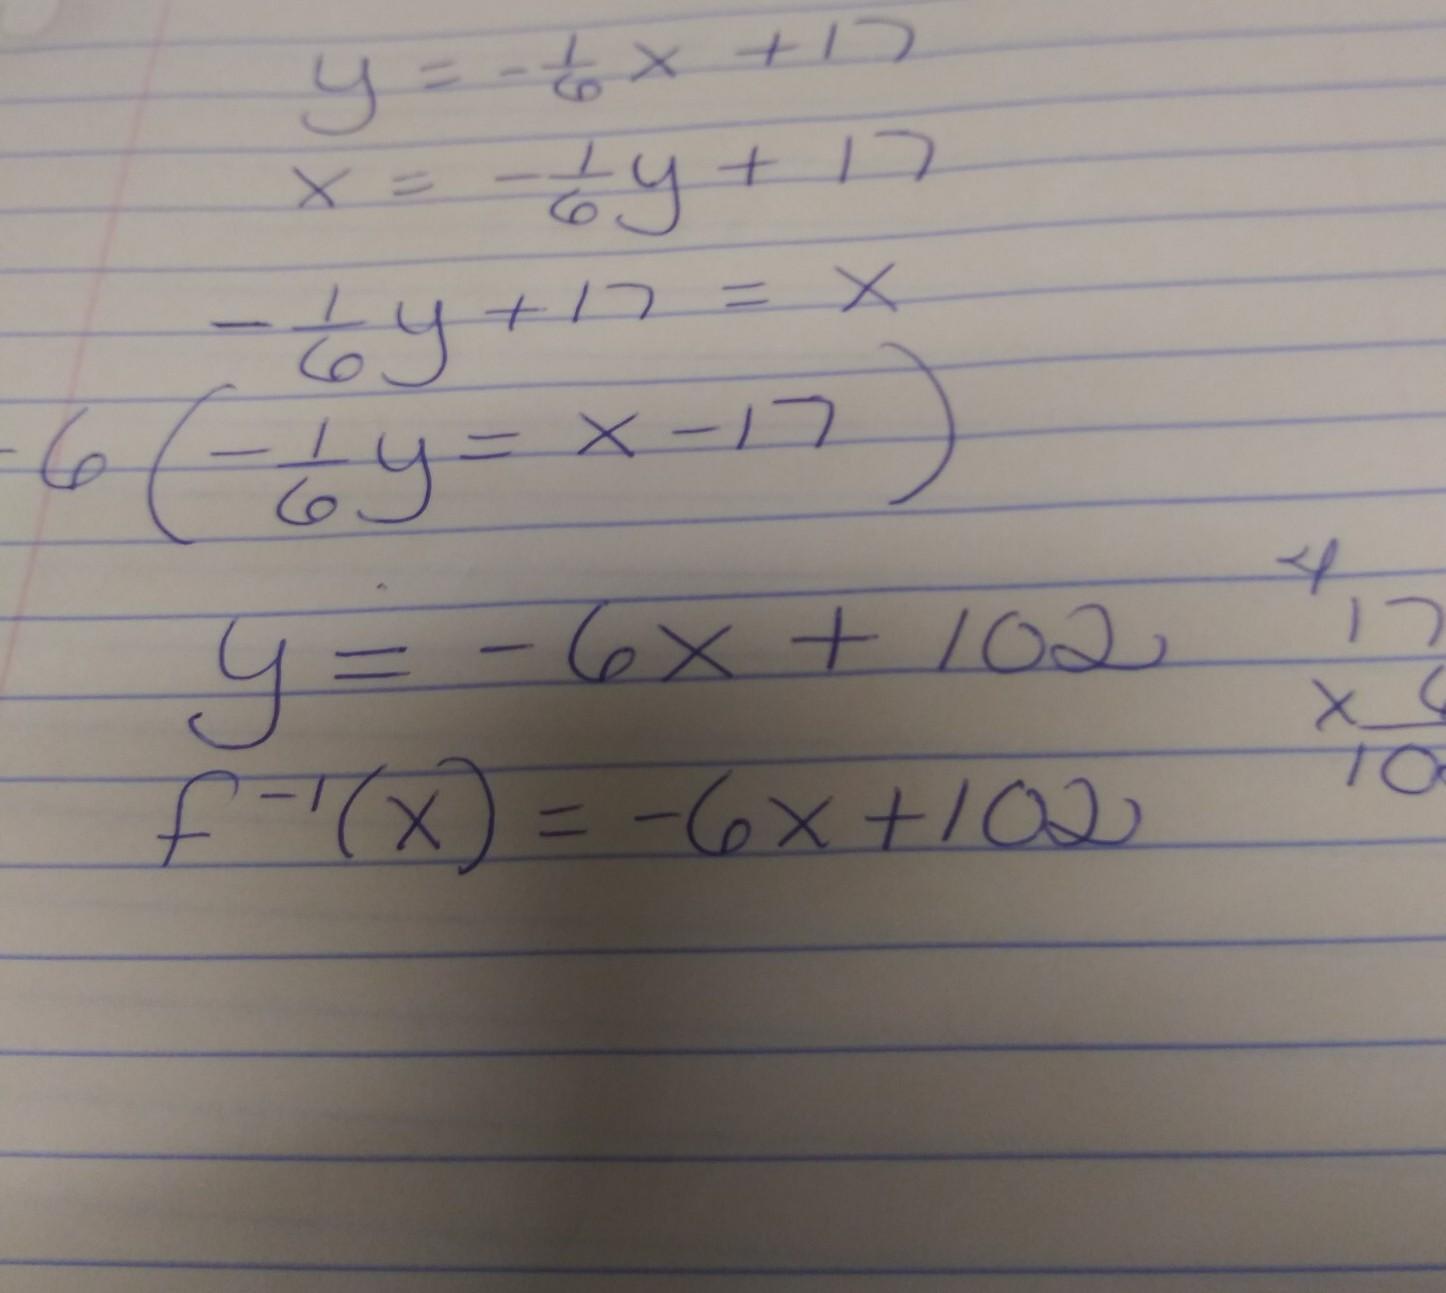 y = -1/6 x + 17
x = -1/6 y + 17
-1/6 y + 17 = x
-6 ( -1/6 y = x - 17 )
y = -6x + 102
f⁻¹(x) = -6x + 102
4
17
x
10